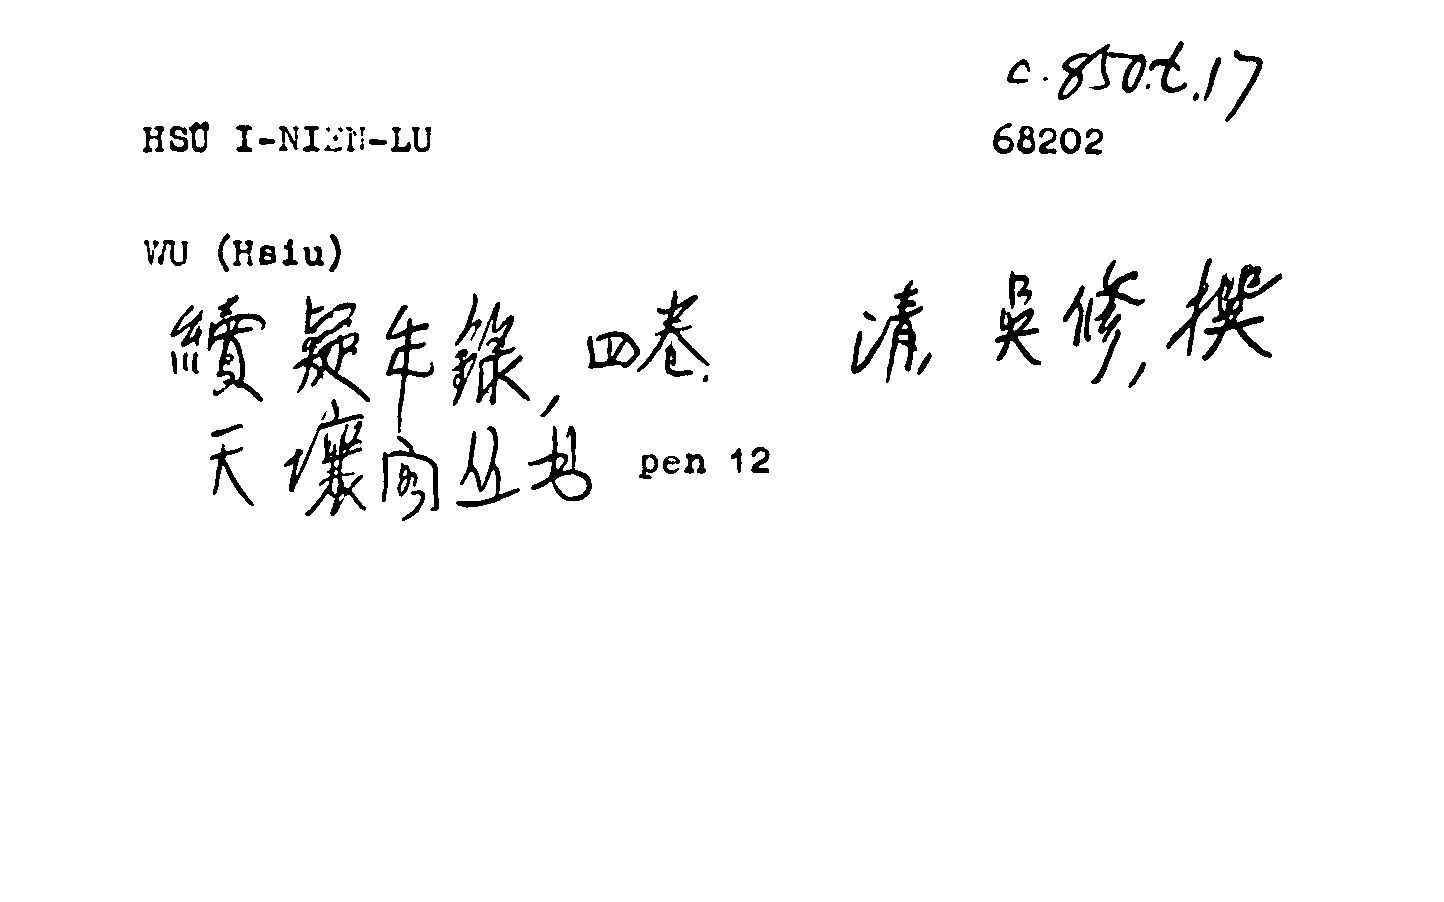 c.850.t.17
HSÜ I-NIEN-LU 68202
WU (Hsiu)
續疑年錄, 四卷. 清, 吳修, 撰
天壤阁丛书 pen 12